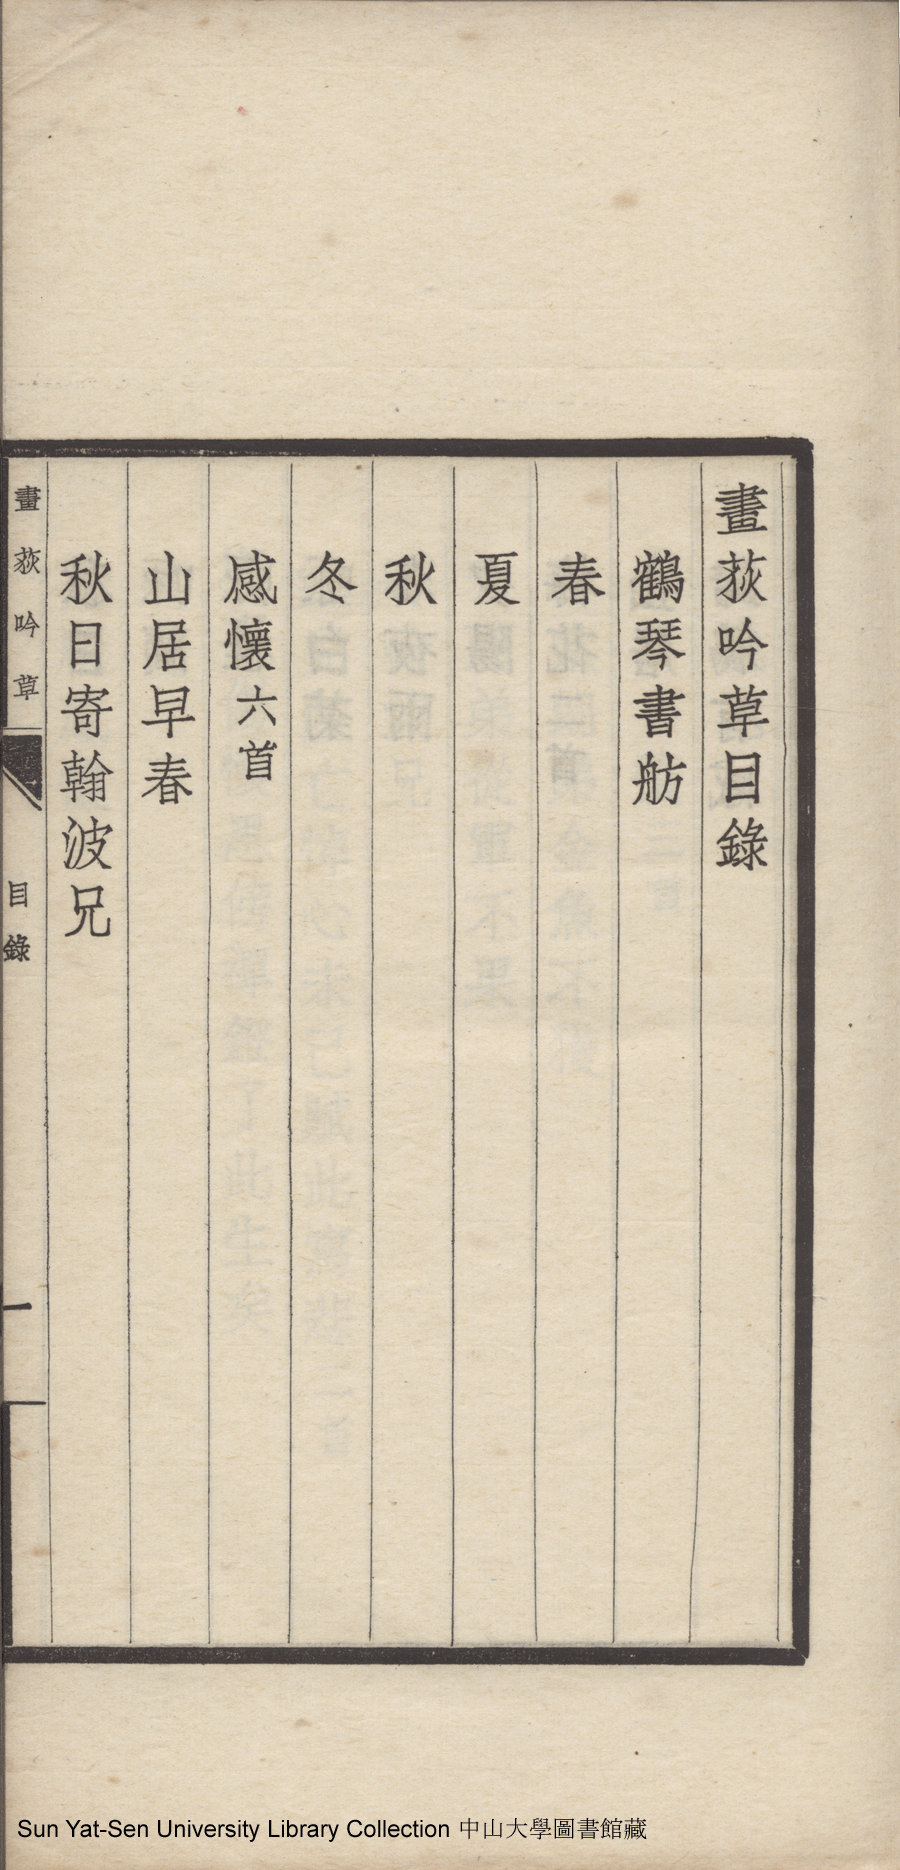 畫荻吟草目錄
鶴琴書舫
春
夏
秋
冬
感懷六首
山居早春
秋日寄翰波兄
畫荻吟草
目錄
一
Sun Yat-Sen University Library Collection 中山大學圖書館藏